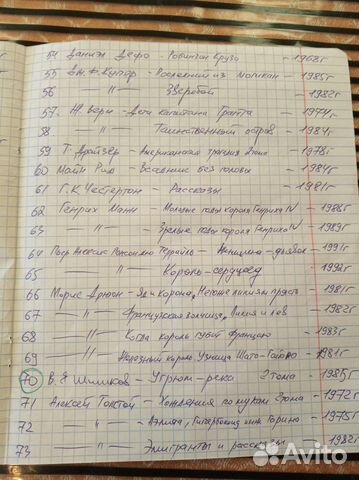 54 Даниэл Дефо Робинзон Крузо - 1968г
55 Дж. Ф. Купер - Последний из могикан - 1985г
56 -"- Зверобой - 1982г
57. Ж. Верн - Дети капитана Гранта - 1974г
58 -"- Таинственный остров - 1984г
59 Т. Драйзер - Американская трагедия 2тома - 1978г
60 Майн Рид - Всадник без головы - 1984г
61 Г.К Честертон - Рассказы - 1981г
62 Генрих Манн - Молодые годы короля Генриха IV - 1986г
63 -"- Зрелые годы короля Генриха IV - 1989г
64 Алексис Террайль - Женщина-дьявол - 1991г
65 -"- Король-сердцеед - 1992г
66 Морис Дрюон - Яд и корона, Негоже лилиям прясть - 1981г
67 -"- Французская волчица, Лилия и лев - 1982г
68 -"- Когда король губит Францию - 1983г
69 -"- Железный король Узница Шато-Гайара - 1981г
70 В. Я Шишков - Угрюм-река 2тома - 1985г
71 Алексей Толстой - Хождения по мукам - 1972г
72 -"- Аэлита, Гиперболоид инж Гарина - 1975г
73 -"- Эмигранты и рассказы - 1982г
Avito